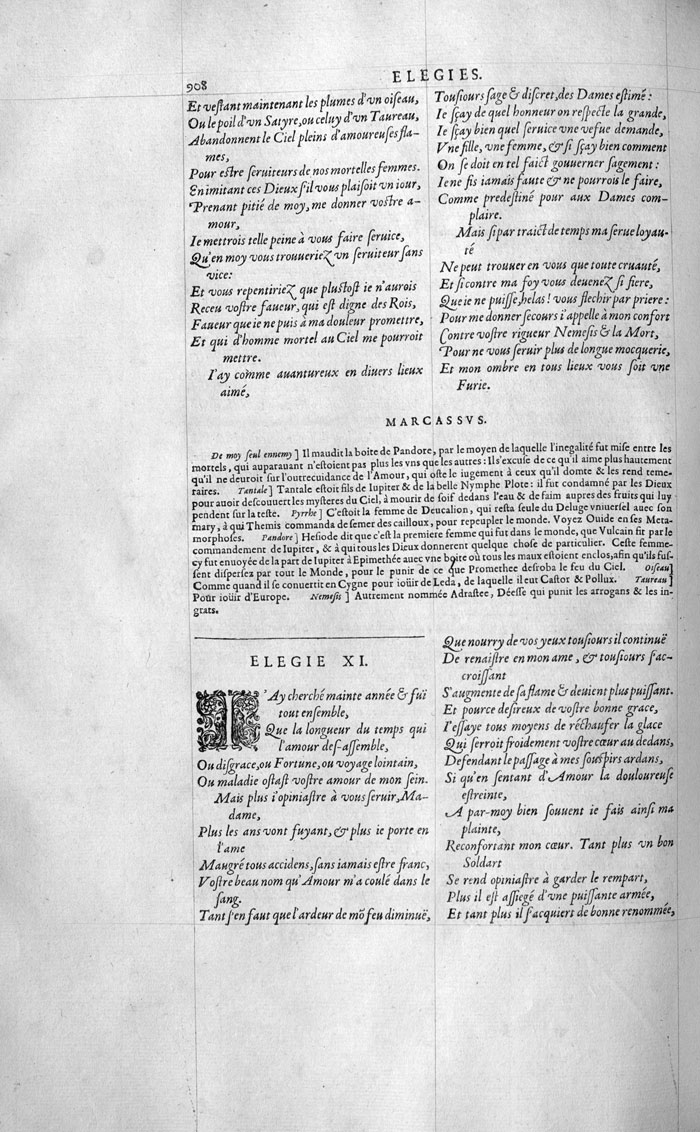 908
ELEGIES.
Et vestant maintenant les plumes d'vn oiseau,
Ou le poil d'vn Satyre, ou celuy d'vn Taureau,
Abandonnent le Ciel pleins d'amoureuses fla-
mes,
Pour estre seruiteurs de nos mortelles femmes.
En imitant ces Dieux s'il vous plaisoit vn iour,
Prenant pitié de moy, me donner vostre a-
mour,
Ie mettrois telle peine à vous faire seruice,
Qu'en moy vous trouueriez vn seruiteur sans
vice:
Et vous repentiriez que plustost ie n'aurois
Receu vostre faueur, qui est digne des Rois,
Faueur que ie ne puis à ma douleur promettre,
Et qui d'homme mortel au Ciel me pourroit
mettre.
I'ay comme auantureux en diuers lieux
aimé,
Tousiours sage & discret, des Dames estimé:
Ie sçay de quel honneur on respecte la grande,
Ie sçay bien quel seruice vne vefue demande,
Vne fille, vne femme, & si sçay bien comment
On se doit en tel faict gouuerner sagement:
Ie ne fis iamais faute & ne pourrois le faire,
Comme predestiné pour aux Dames com-
plaire.
Mais si par traict de temps ma serue loyau-
té
Ne peut trouuer en vous que toute cruauté,
Et si contre ma foy vous deuenez si fiere,
Que ie ne puisse, helas! vous flechir par priere:
Pour me donner secours i'appelle à mon confort
Contre vostre rigueur Nemesis & la Mort,
Pour ne vous seruir plus de longue mocquerie,
Et mon ombre en tous lieux vous soit vne
Furie.
MARCASSVS.
De moy seul ennemy] Il maudit la boite de Pandore, par le moyen de laquelle l'inegalité fut mise entre les
mortels, qui auparauant n'estoient pas plus les vns que les autres: Il s'excuse de ce qu'il aime plus hautement
qu'il ne deuroit sur l'outrecuidance de l'Amour, qui oste le iugement à ceux qu'il domte & les rend teme-
raires. Tantale] Tantale estoit fils de Iupiter & de la belle Nymphe Plote: il fut condamné par les Dieux
pour auoir descouuert les mysteres du Ciel, à mourir de soif dedans l'eau & de faim aupres des fruits qui luy
pendent sur la teste. Pyrrhe] C'estoit la femme de Deucalion, qui resta seule du Deluge vniuersel auec son
mary, à qui Themis commanda de semer des cailloux, pour repeupler le monde. Voyez Ouide en ses Meta-
morphoses. Pandore] Hesiode dit que c'est la premiere femme qui fut dans le monde, que Vulcain fit par le
commandement de Iupiter, & à qui tous les Dieux donnerent quelque chose de particulier. Ceste femme-
cy fut enuoyée de la part de Iupiter à Epimethée auec vne boite où tous les maux estoient enclos, afin qu'ils fus-
sent dispersez par tout le Monde, pour le punir de ce que Promethee desroba le feu du Ciel. Oiseau]
Comme quand il se conuertit en Cygne pour ioüir de Leda, de laquelle il eut Castor & Pollux. Taureau]
Pour ioüir d'Europe. Nemesis] Autrement nommée Adrastee, Déesse qui punit les arrogans & les in-
grats.
ELEGIE XI.
I'Ay cherché mainte année & fuï
tout ensemble,
Que la longueur du temps qui
l'amour des-assemble,
Ou disgrace, ou Fortune, ou voyage lointain,
Ou maladie ostast vostre amour de mon sein.
Mais plus i'opiniastre à vous seruir, Ma-
dame,
Plus les ans vont fuyant, & plus ie porte en
l'ame
Maugré tous accidens, sans iamais estre franc,
Vostre beau nom qu'Amour m'a coulé dans le
sang.
Tant s'en faut que l'ardeur de mõ feu diminuë,
Que nourry de vos yeux tousiours il continuë
De renaistre en mon ame, & tousiours s'ac-
croissant
S'augmente de sa flame & deuient plus puissant.
Et pource desireux de vostre bonne grace,
I'essaye tous moyens de réchaufer la glace
Qui serroit froidement vostre cœur au dedans,
Defendant le passage à mes souspirs ardans,
Si qu'en sentant d'Amour la douloureuse
estreinte,
A par-moy bien souuent ie fais ainsi ma
plainte,
Reconfortant mon cœur. Tant plus vn bon
Soldart
Se rend opiniastre à garder le rempart,
Plus il est assiegé d'vne puissante armée,
Et tant plus il s'acquiert de bonne renommée,